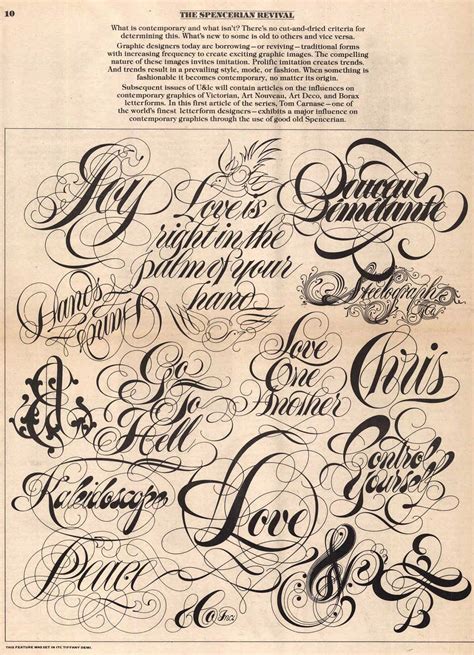 10
THE SPENCERIAN REVIVAL
What is contemporary and what isn't? There's no cut-and-dried criteria for
determining this. What's new to some is old to others and vice versa.
Graphic designers today are borrowing—or reviving—traditional forms
with increasing frequency to create exciting graphic images. The compelling
nature of these images invites imitation. Prolific imitation creates trends.
And trends result in a prevailing style, mode, or fashion. When something is
fashionable it becomes contemporary, no matter its origin.
Subsequent issues of U&lc will contain articles on the influences on
contemporary graphics of Victorian, Art Nouveau, Art Deco, and Borax
letterforms. In this first article of the series, Tom Carnase—one of
the world's finest letterform designers—exhibits a major influence on
contemporary graphics through the use of good old Spencerian.
Joy
Love is
right in the
palm of your
hand
Hands
Go
To
Hell
Love
One
Another
Chris
Kaleidoscope
Love
Control
Yourself
Peace
&
Co Inc.
&
B
THIS FEATURE WAS SET IN ITC TIFFANY DEMI.